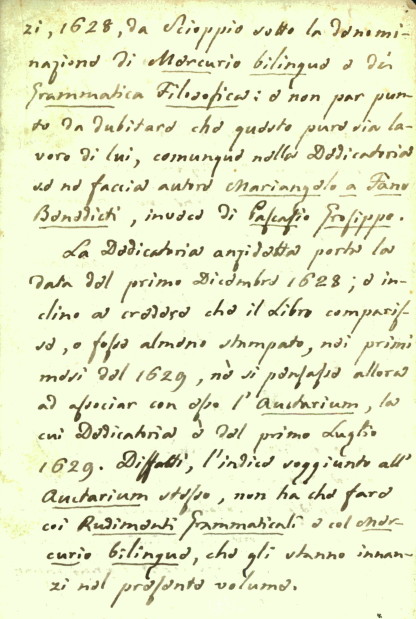 zi, 1628, da Scioppio sotto la denomi-
nazione di Mercurio bilingue e di
Grammatica Filosofica: e non par pun-
to da dubitare che questo pure sia la-
voro di lui, comunque nella Dedicatoria
se ne faccia autore Mariangelo a Fano
Benedicti, invece di Pascasio Grosippo.
La Dedicatoria anzidetta porta la
data del primo Dicembre 1628; e in-
clino a credere che il Libro comparis-
se, o fosse almeno stampato, nei primi
mesi del 1629, nè si pensasse allora
ad associar con esso l'Auctarium, la
cui Dedicatoria è del primo Luglio
1629. Diffatti, l'indice soggiunto all'
Auctarium stesso, non ha che fare
coi Rudimenti Grammaticali e col Mer-
curio bilingue, che gli stanno innan-
zi nel presente volume.